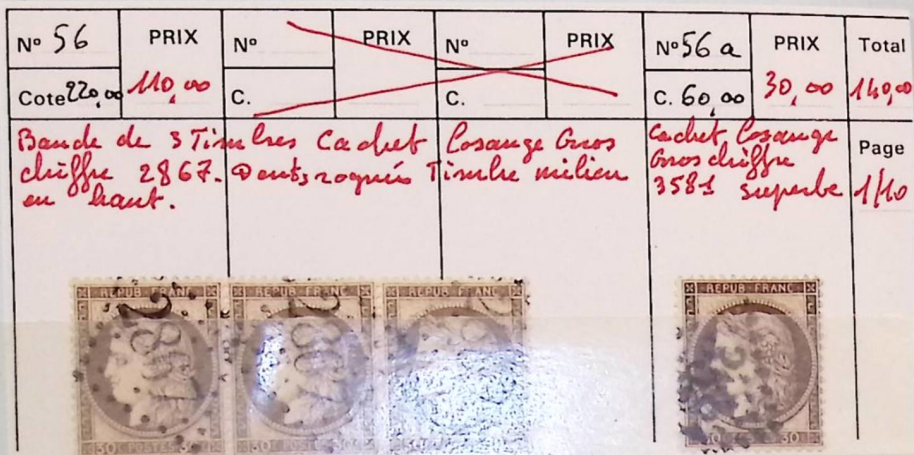 N° 56 PRIX N° PRIX N° PRIX N° 56 a PRIX Total
Cote 220,00 110,00 C. C. C. 60,00 30,00 140,00
Bande de 3 Timbres Cachet Losange Gros
chiffre 2867. Dents rognés Timbre milieu
en haut.
Cachet Losange
Gros chiffre
3581 superbe
Page
1/10
REPUB FRANC REPUB FRANC REPUB FRANC REPUB FRANC
2867 2867
30C POSTES 30C 30C POSTES 30